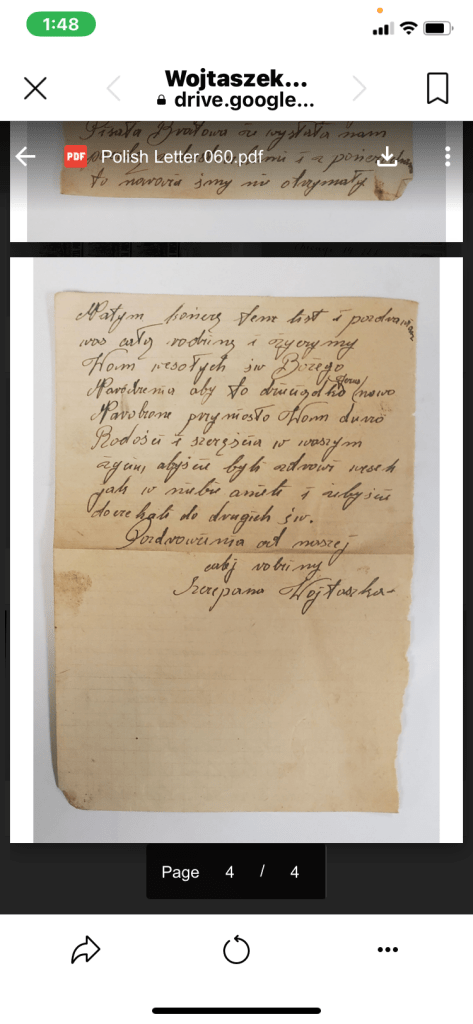 1:48
Wojtaszek...
drive.google...
Pisała Bratowa że wysłała nam
PDF Polish Letter 060.pdf
i z pończ
to narazie źmy nie otrzymały
Na tym kończę ten list i pozdrawiam
was całą rodzinę i życzymy
Wam wesołych św Bożego
Narodzenia aby to dzieciątko Jezus nowo
Narodzone przyniosło Wam dużo
Radości i szczęścia w waszym
życiu, abyście byli zdrowi weseli
jak w niebie anieli i żebyście
doczekali do drugich św.
Pozdrowienia od naszej
całej rodziny
Szczepana Wojtaszka
Page 4 / 4